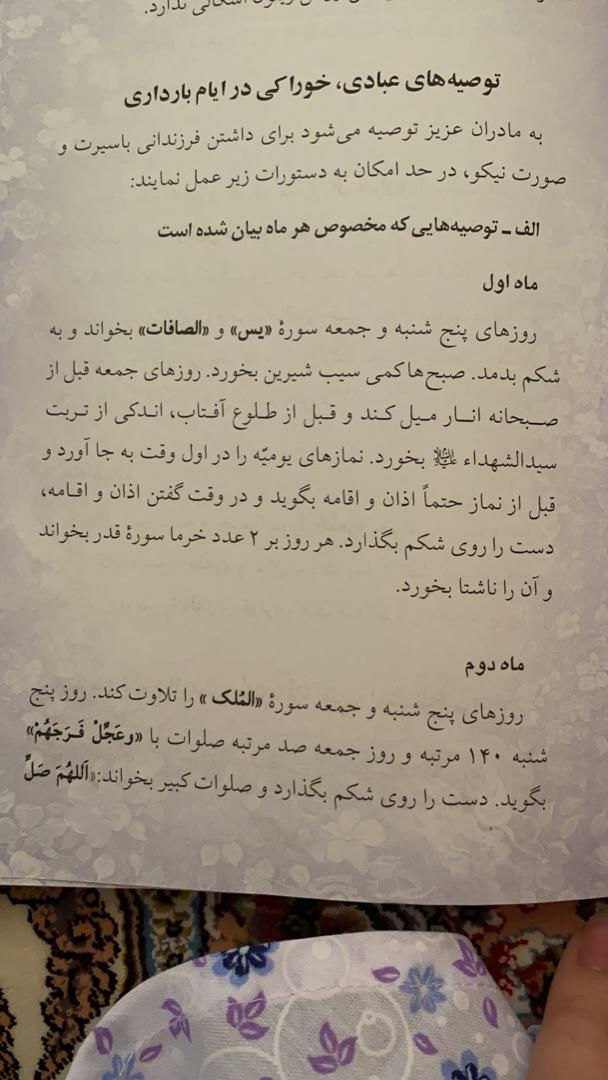 اشکالی ندارد.
توصیه‌های عبادی، خوراکی در ایام بارداری
به مادران عزیز توصیه می‌شود برای داشتن فرزندانی باسیرت و
صورت نیکو، در حد امکان به دستورات زیر عمل نمایند:
الف ـ توصیه‌هایی که مخصوص هر ماه بیان شده است
ماه اول
روزهای پنج شنبه و جمعه سورهٔ «یس» و «الصافات» بخواند و به
شکم بدمد. صبح‌ها کمی سیب شیرین بخورد. روزهای جمعه قبل از
صبحانه انار میل کند و قبل از طلوع آفتاب، اندکی از تربت
سیدالشهداء علیه‌السلام بخورد. نمازهای یومیّه را در اول وقت به جا آورد و
قبل از نماز حتماً اذان و اقامه بگوید و در وقت گفتن اذان و اقامه،
دست را روی شکم بگذارد. هر روز بر ۲ عدد خرما سورهٔ قدر بخواند
و آن را ناشتا بخورد.
ماه دوم
روزهای پنج شنبه و جمعه سورهٔ «المُلک» را تلاوت کند. روز پنج
شنبه ۱۴۰ مرتبه و روز جمعه صد مرتبه صلوات با «وعَجِّلْ فَرَجَهُمْ»
بگوید. دست را روی شکم بگذارد و صلوات کبیر بخواند:«اَللهُمَ صَلِّ